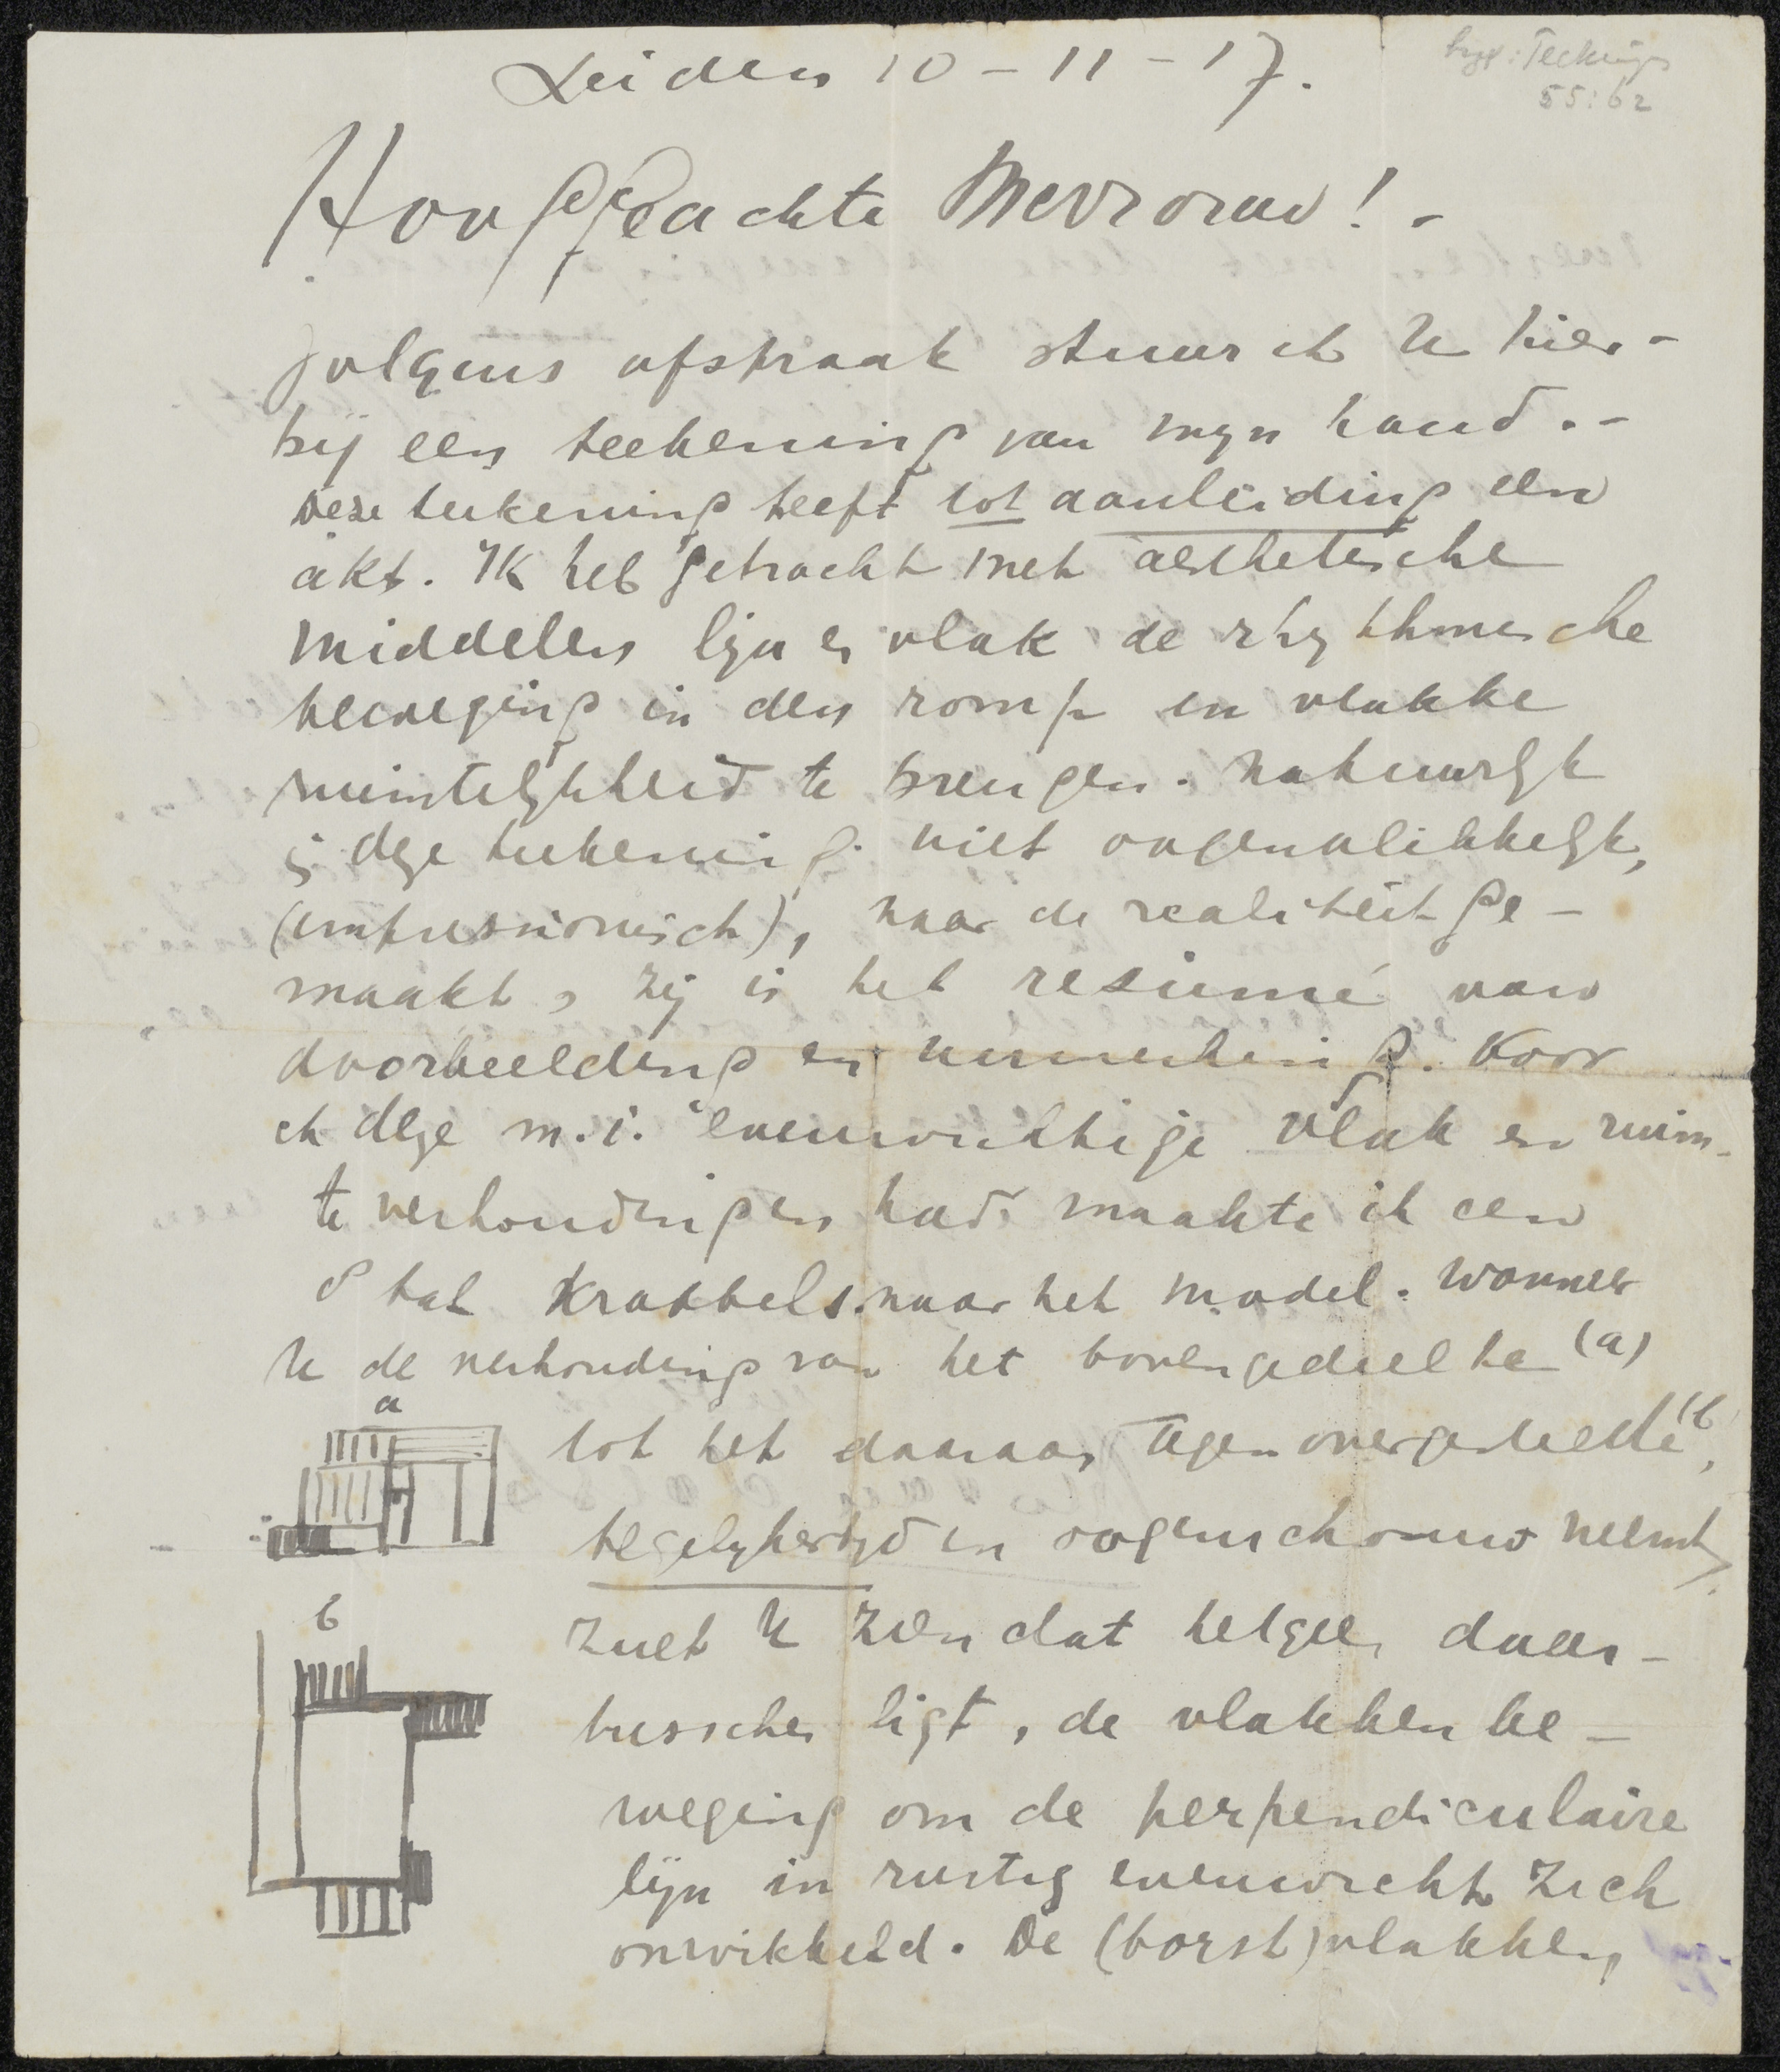 Leiden 10-11-17.
55:62
Hooggeachte Mevrouw!-
volgens afspraak stuur ik U hier-
bij een teekening van mijn hand.-
Deze teekening heeft tot aanleiding een
akt. Ik heb getracht met aesthetische
middelen lijn en vlak de rhythmische
beweging in den romp en vlakke
ruimtelijkheid te brengen. Natuurlijk
is deze teekening niet oogenblikkelijk,
(impressionisch), naar de realiteit ge-
maakt, zij is het resumé van
doorbeelding en . Voor
ik deze m.i. evenwichtige vlak en ruim-
te verhoudingen had maakte ik een
stal krabbels naar het model. Wanneer
U de verhouding van het bovengedeelte (a)
a
tot het daaraan tegenovergestelde (b),
tegelijkertijd in oogenschouw neemt,
b
zult U zien dat hetgeen daar-
tusschen ligt, de vlakken be-
weging om de perpendiculaire
lijn in rustig evenwicht zich
onwikkeld. De (borst)vlakken